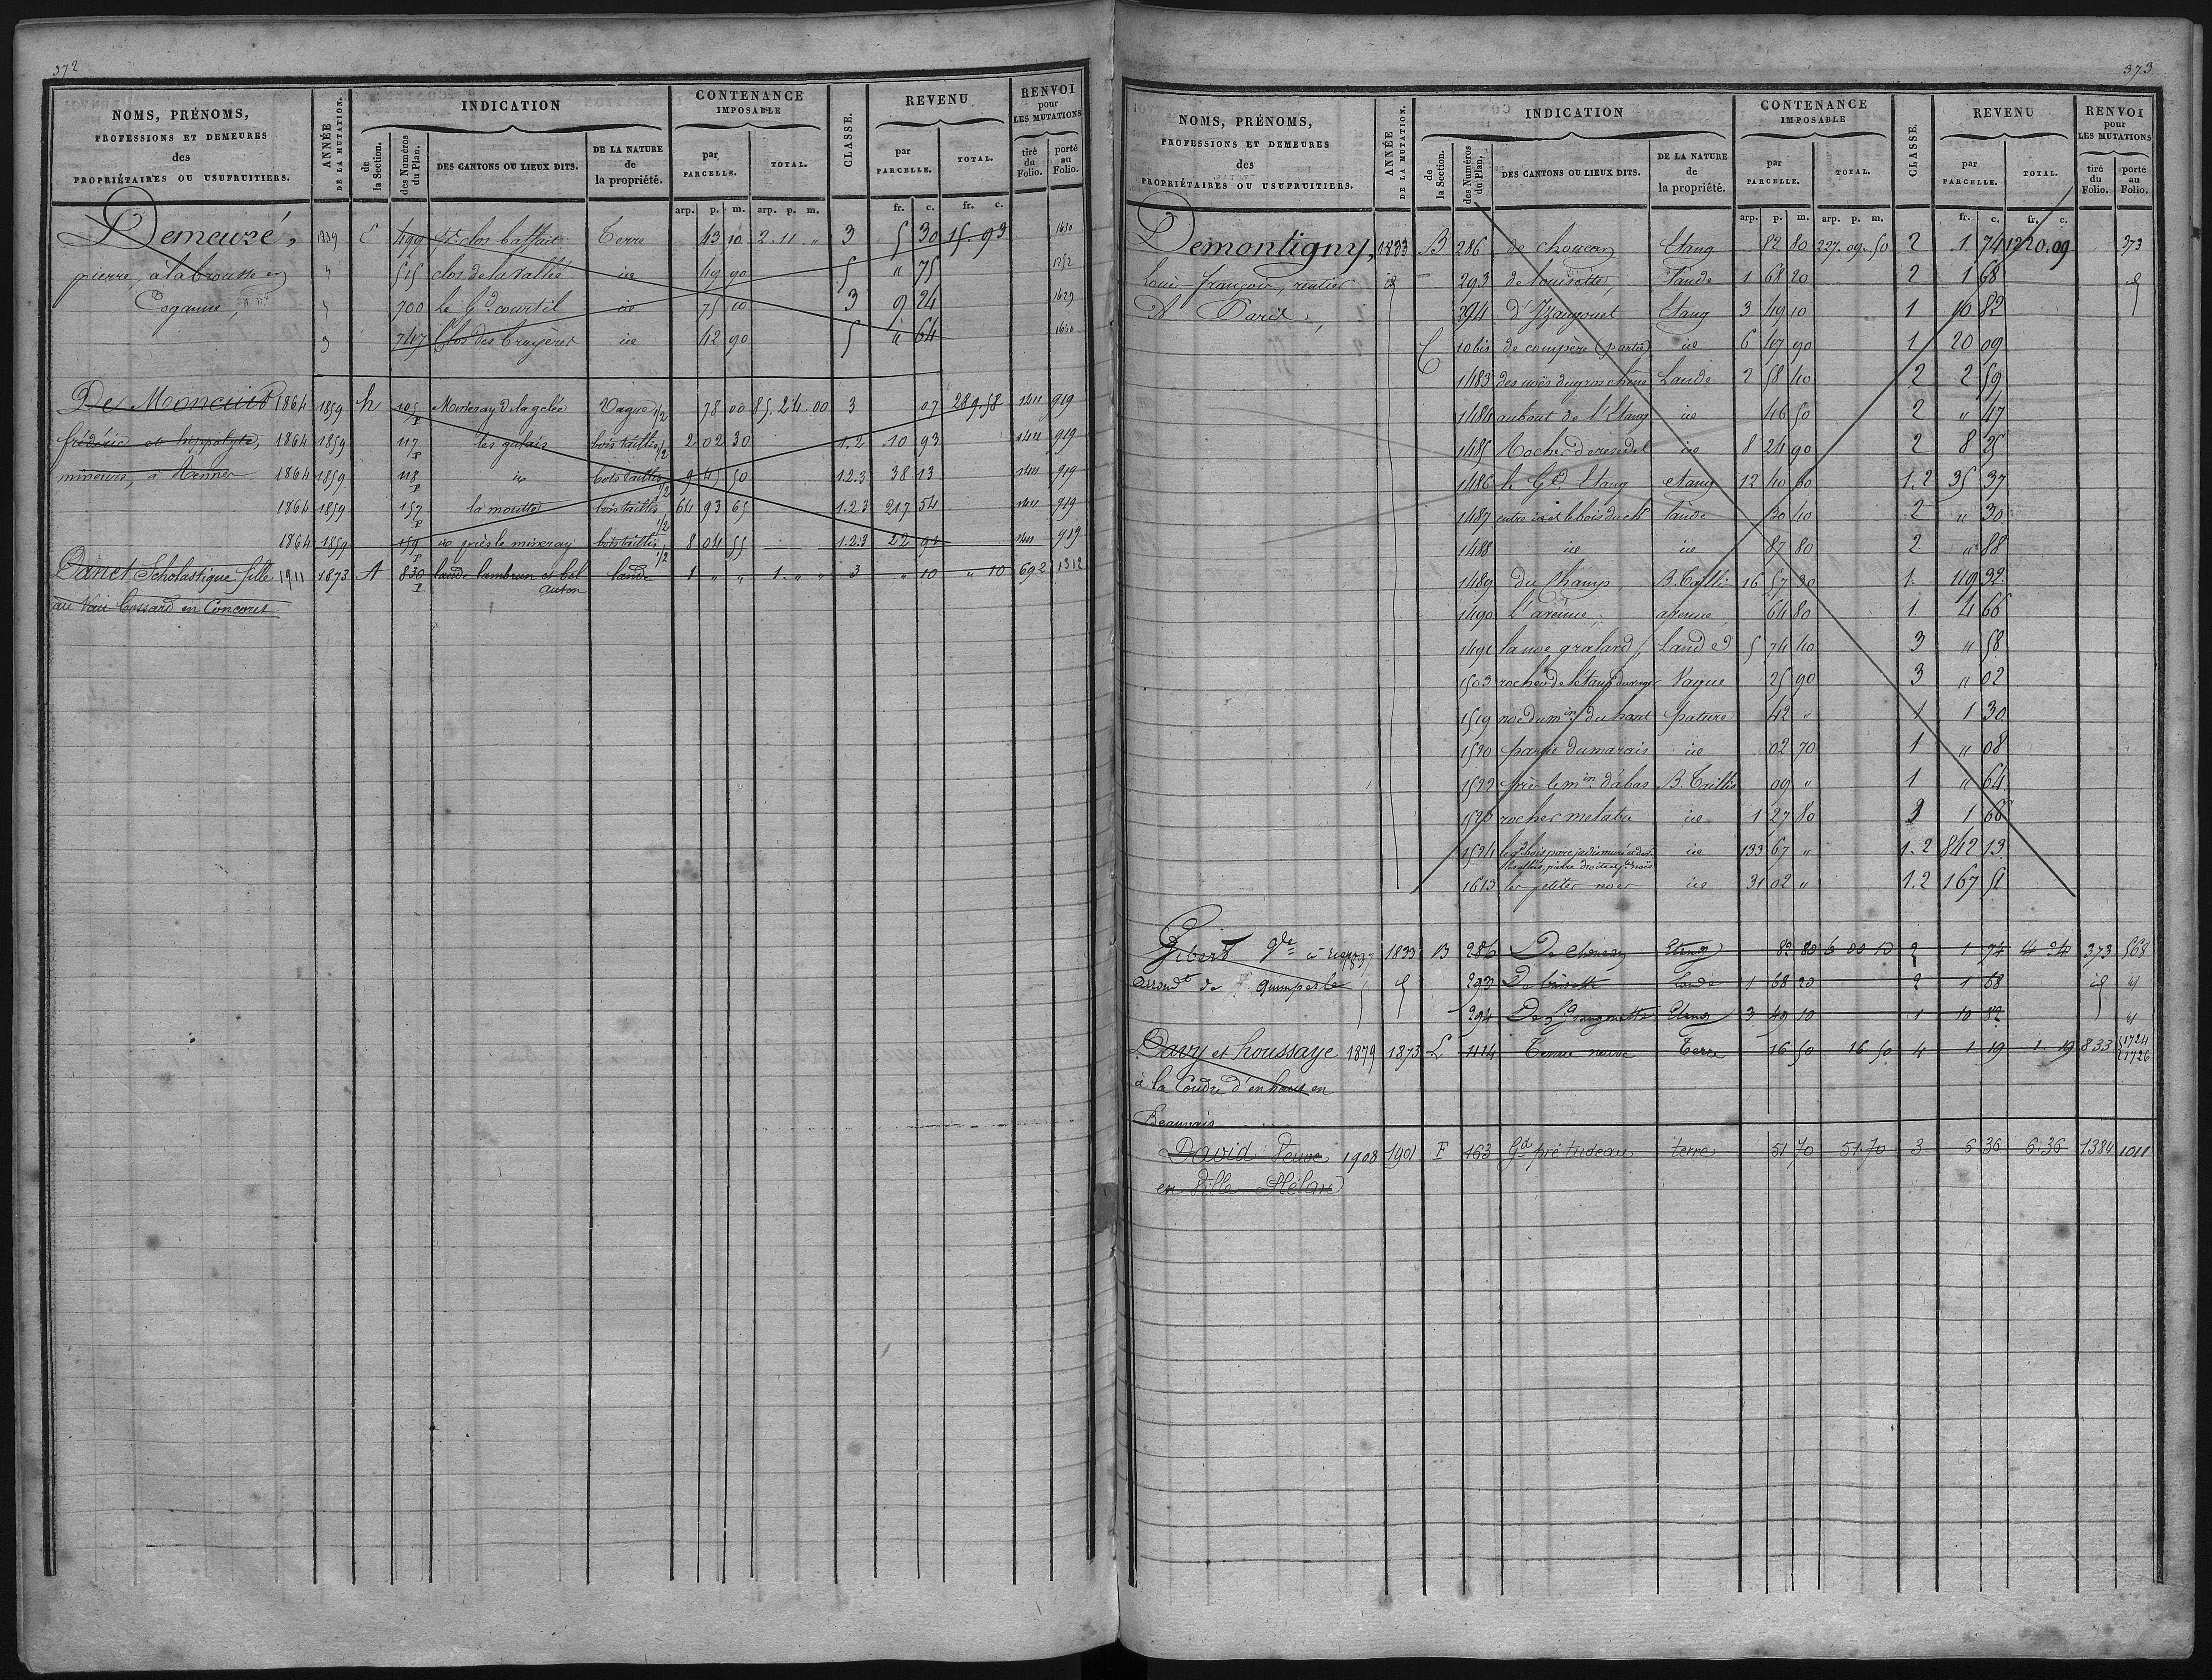 372
NOMS, PRÉNOMS, PROFESSIONS ET DEMEURES des PROPRIÉTAIRES OU USUFRUITIERS.
ANNÉE DE LA MUTATION.
INDICATION
de la Section.
des Numéros du Plan.
DES CANTONS OU LIEUX DITS.
DE LA NATURE de la propriété.
CONTENANCE IMPOSABLE
par PARCELLE.
TOTAL.
CLASSE.
REVENU
par PARCELLE.
TOTAL.
RENVOI pour LES MUTATIONS
tiré du Folio.
porté au Folio.
arp. p. m. arp. p. m. fr. c. fr. c.
Demeuré, 1839 C 499 clos Terre 43 10 2.11 " 3 5 30 15.93 1630
pierre, à la brousse en " 515 clos de la vallée ice 49 90 5 " 75 1252
" 700 le Gd courtil ice 75 10 3 9 24 1629
747 Clos des bruyères ice 42 90 5 " 64 1630
De Moncuit 1864 1859 h 105 p de la gelée Vague 1/2 78 00 85.24.00 3 07 289.58 1411 919
frédéric et hippolyte, 1864 1859 117 p les galais bois taillis 1/2 2 02 30 1.2 10 93 1411 919
mineurs, à Rennes 1864 1859 118 p ice bois taillis 1/2 9 45 50 1.2.3 38 13 1411 919
1864 1859 157 p la moutte bois taillis 1/2 64 93 65 1.2.3 217 54 1411 919
1864 1859 159 p ice près le bois taillis 1/2 8 04 55 1.2.3 22 91 1411 919
Danet Scholastique fille 1911 1873 A 830 p lande lambrun et bel lande 1 " " 1. " " 3 " 10 " 10 692 1312
auton
au Vau Cossard en Concoret
373
NOMS, PRÉNOMS, PROFESSIONS ET DEMEURES des PROPRIÉTAIRES OU USUFRUITIERS.
ANNÉE DE LA MUTATION.
INDICATION
de la Section.
des Numéros du Plan.
DES CANTONS OU LIEUX DITS.
DE LA NATURE de la propriété.
CONTENANCE IMPOSABLE
par PARCELLE.
TOTAL.
CLASSE.
REVENU
par PARCELLE.
TOTAL.
RENVOI pour LES MUTATIONS
tiré du Folio.
porté au Folio.
arp. p. m. arp. p. m. fr. c. fr. c.
Demontigny, 1833 B 286 de choucan Etang 82 80 227.09.50 2 1 74 1220.09 373
Louis françois, rentier id 293 de louisette, Lande 1 68 20 2 1 68 id
A Paris, 294 Etang 3 49 10 1 10 82
C 10 bis de compère (partie) ice 6 47 90 1 20 09
1483 des noës du gros chêne Lande 2 58 40 2 2 59
1484 au bout de l'Etang ice 46 50 2 " 47
1485 Rocher ice 8 24 90 2 8 25
1486 le Gd Etang etang 12 40 60 1.2 35 37
1487 entre ice et le bois du ch lande 30 10 2 " 30
1488 ice ice 87 80 2 " 88
1489 du Champ B. Taillis 16 57 30 1 49 32
1490 L'avenue avenue 64 80 1 4 66
1491 la noe gralard, Lande 5 74 40 3 " 58
1503 rocher de l'étang Vague 25 90 3 " 02
1519 noë du min du haut pature 42 " 1 1 30
1520 partie du marais ice 02 70 1 " 08
1522 près le min d'abas B. Taillis 09 " 1 " 64
1523 rocher ice 1 27 80 3 1 66
1524 ice 133 67 " 1.2 842 13
1613 les petites noes ice 31 02 " 1.2 167 51
Gibert Vve à 1837 1833 B 286 De Choucan Etang 82 80 6 00 10 2 1 74 14 24 373 568
arrondt de Quimperlé 293 De louisette Lande 1 68 20 2 1 68 id id
294 Etang 3 49 10 1 10 82 id
Davy et houssaye 1879 1873 L 1114 Tenue neuve Terre 16 50 16.50 4 1 19 1.19 833 1724 1726
à la Coudre d'en haut en
Beauvais
David Veuve 1908 1901 F 163 Gd pré tudeau terre 51 70 51.70 3 6 36 6.36 1384 1011
en Ville Hélan